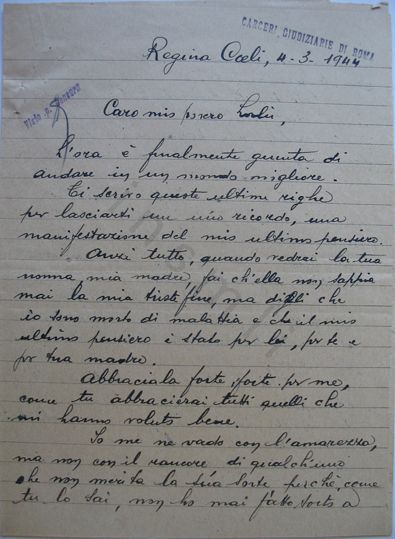 CARCERI GIUDIZIARIE DI ROMA
Regina Cœli, 4-3-1944
Visto p. Censura
Caro mio povero
L'ora è finalmente giunta di
andare in un mondo migliore.
Ti scrivo queste ultime righe
per lasciarti un mio ricordo, una
manifestazione del mio ultimo pensiero.
Anzi tutto, quando vedrai la tua
nonna mia madre, fai ch'ella non sappia
mai la mia triste fine, ma dilli che
io sono morto di malattia e che il mio
ultimo pensiero è stato per lei, per te e
per tua madre.
Abbracciala forte, forte per me,
come tu abbraccierai tutti quelli che
mi hanno voluto bene.
Io me ne vado con l'amarezza,
ma non con il rancore di qualch'uno
che non merita la sua sorte perchè, come
tu lo sai, non ho mai fatto torto a